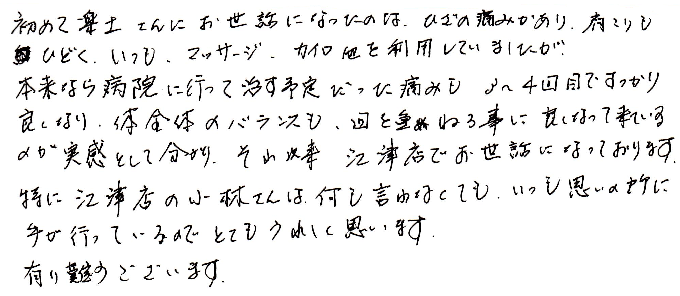 初めて楽土さんにお世話になったのは、ひざの痛みがあり、肩こりも
ひどく、いつも、マッサージ、カイロ他を利用していましたが、
本来なら病院に行って治す予定だった痛みも 3〜4回目ですっかり
良くなり、体全体のバランスも、回を重ねる事に良くなって来ている
のが実感として分かり、それ以来 江津店でお世話になっております。
特に江津店の小林さんは、何も言わなくても、いつも思いの所に
手が行っているのでとてもうれしく思います。
有り難うございます。